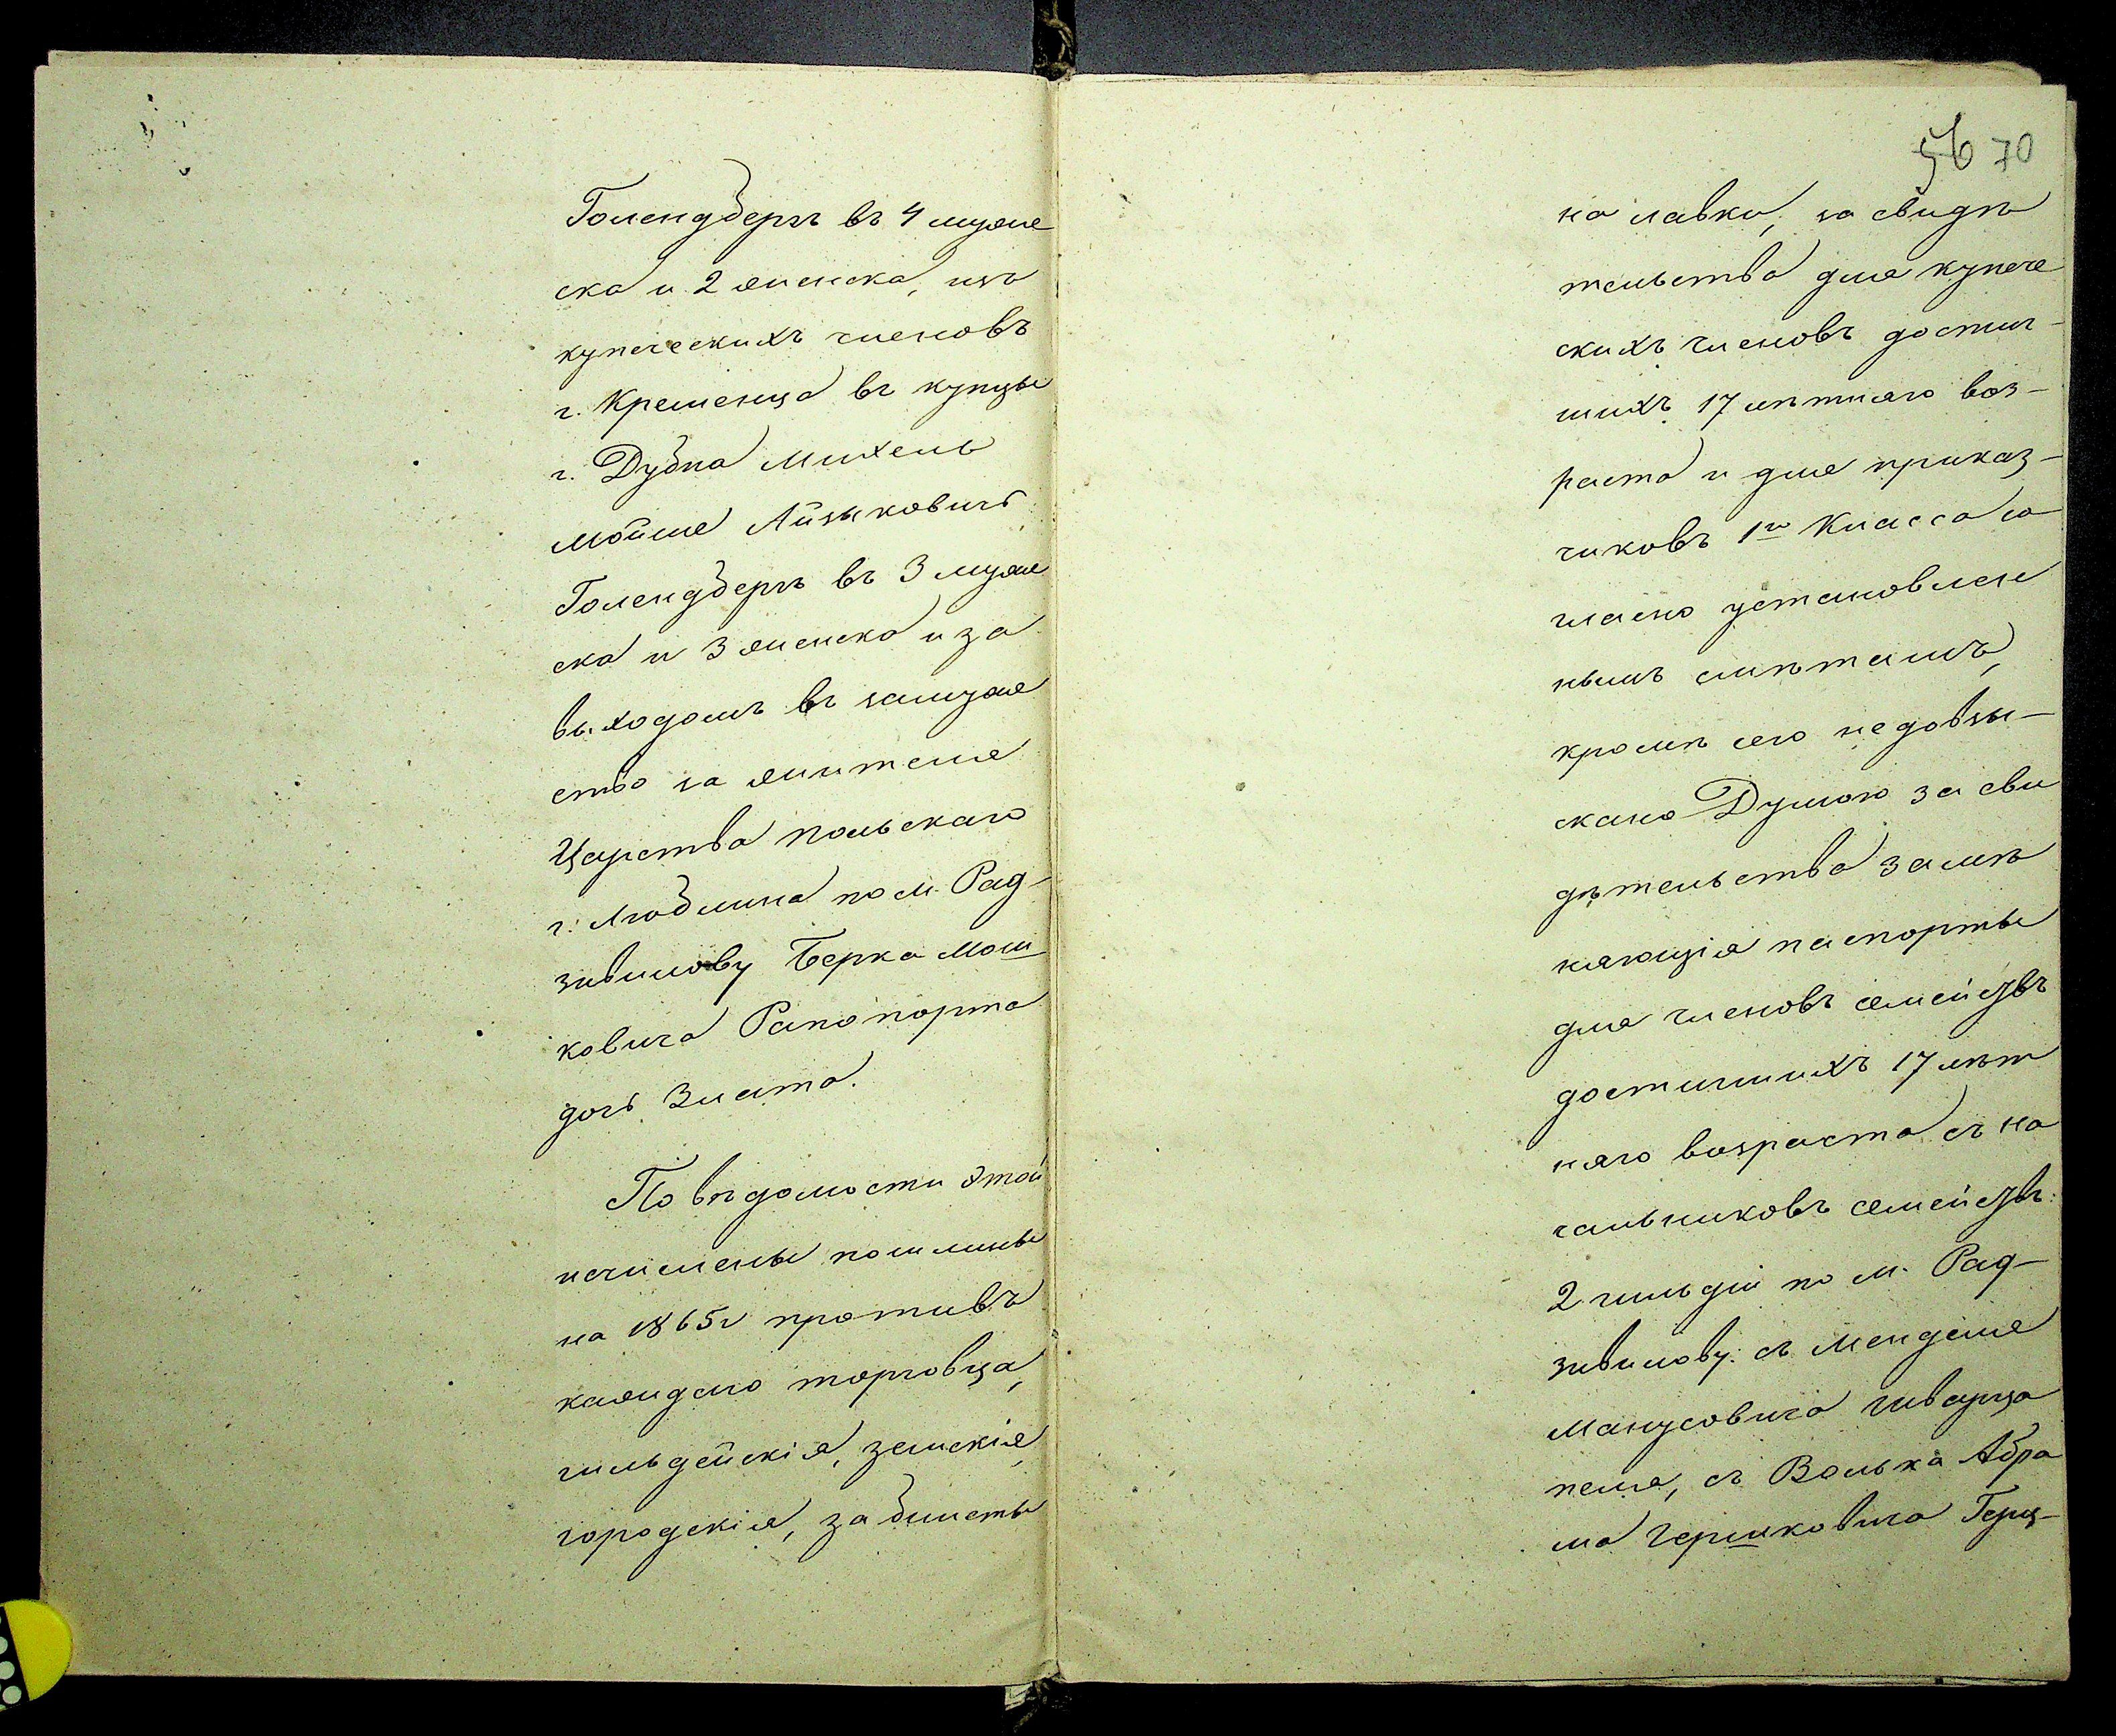 Голендберг въ 4 мужс
ска и 2 женска, изъ
купеческихъ членовъ
г. Кременца въ купцы
г. Дубна Михель
Мойше Айзыковичъ
Голендбергъ въ 3 мужс
ска и 3 женска и за
выходомъ въ замуже
ство за жителя
Царства Польскаго
г. Люблина по м. Рад-
зивилову Берка Мош
ковича Рапопорта
дочь Злата.
По вѣдомости этой
исчислены пошлины
на 1865 г противъ
каждаго торговца,
гильдейскія, земскія,
городскія, за билеты
56 70
на лавки, за свидѣ
тельства для купече
скихъ членовъ достиг-
шихъ 17 лѣтняго воз-
раста и для приказ-
чиковъ 1го Класса со
гласно установлен
нымъ смѣтамъ,
кромѣ сего недовзы-
скано Думою за сви
дѣтельства замѣ
няющія паспорты
для членовъ семействъ
достигшихъ 17 лѣт
няго возраста съ на
чальниковъ семействъ:
2 гильдіи по м. Рад-
зивилову: съ Менделя
Манусовича Шварца
пеля, съ Волька Абра
ма Гершковича Герц-